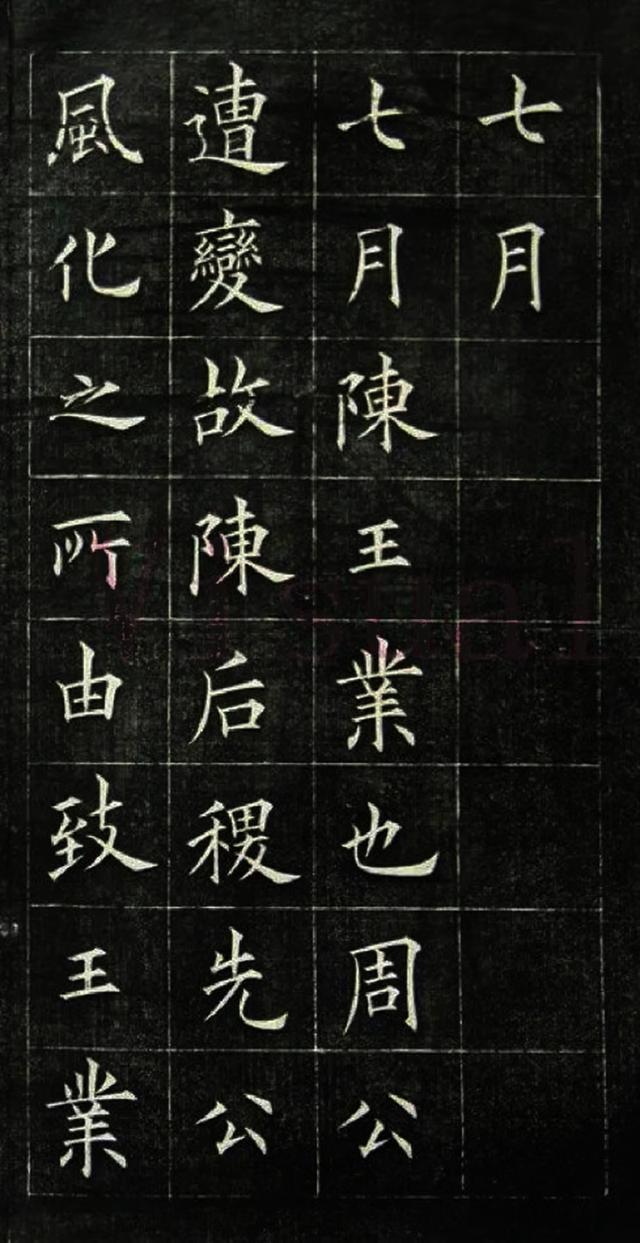 七月
七月陳王業也周公
遭變故陳后稷先公
風化之所由致王業